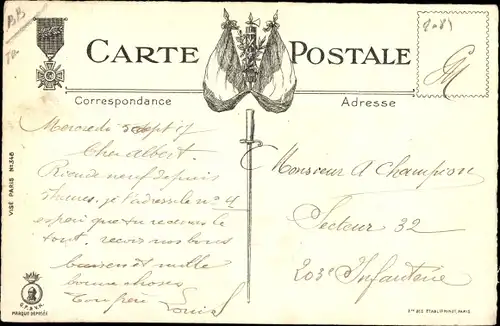 BB
CARTE POSTALE
Correspondance
Adresse
Mercredi 5 Sept 17
Cher Albert.
Rien de neuf depuis
je t'adresse le no 4
espoir que tu recevras le
tout. recois nos bons
baisers et mille
bonne choses
Ton père Louis
Monsieur A Champion
Secteur 32
203e Infanterie
VISÉ PARIS No 546
MARQUE DÉPOSÉE
PARIS